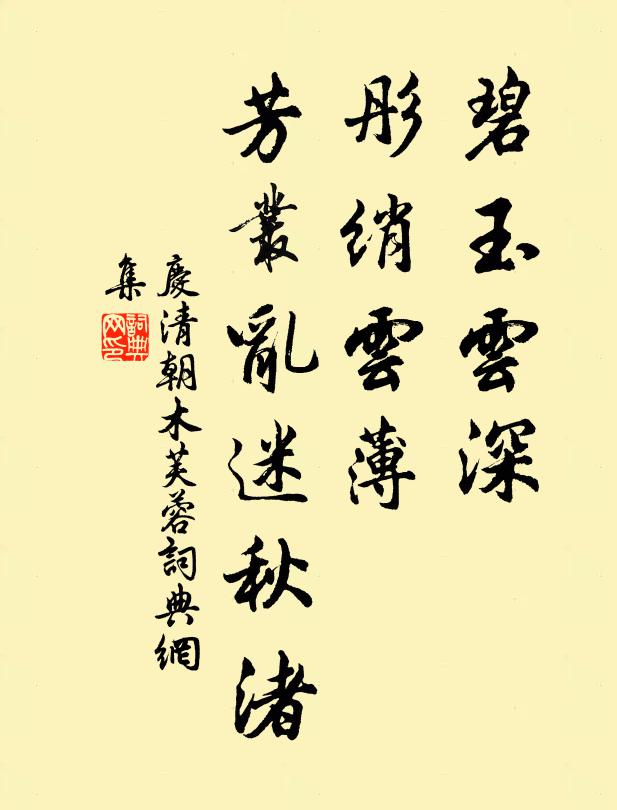 碧玉雲深
彤綃雲薄
芳叢亂迷秋渚
慶清朝木芙蓉詞典網
集
詞典
網印